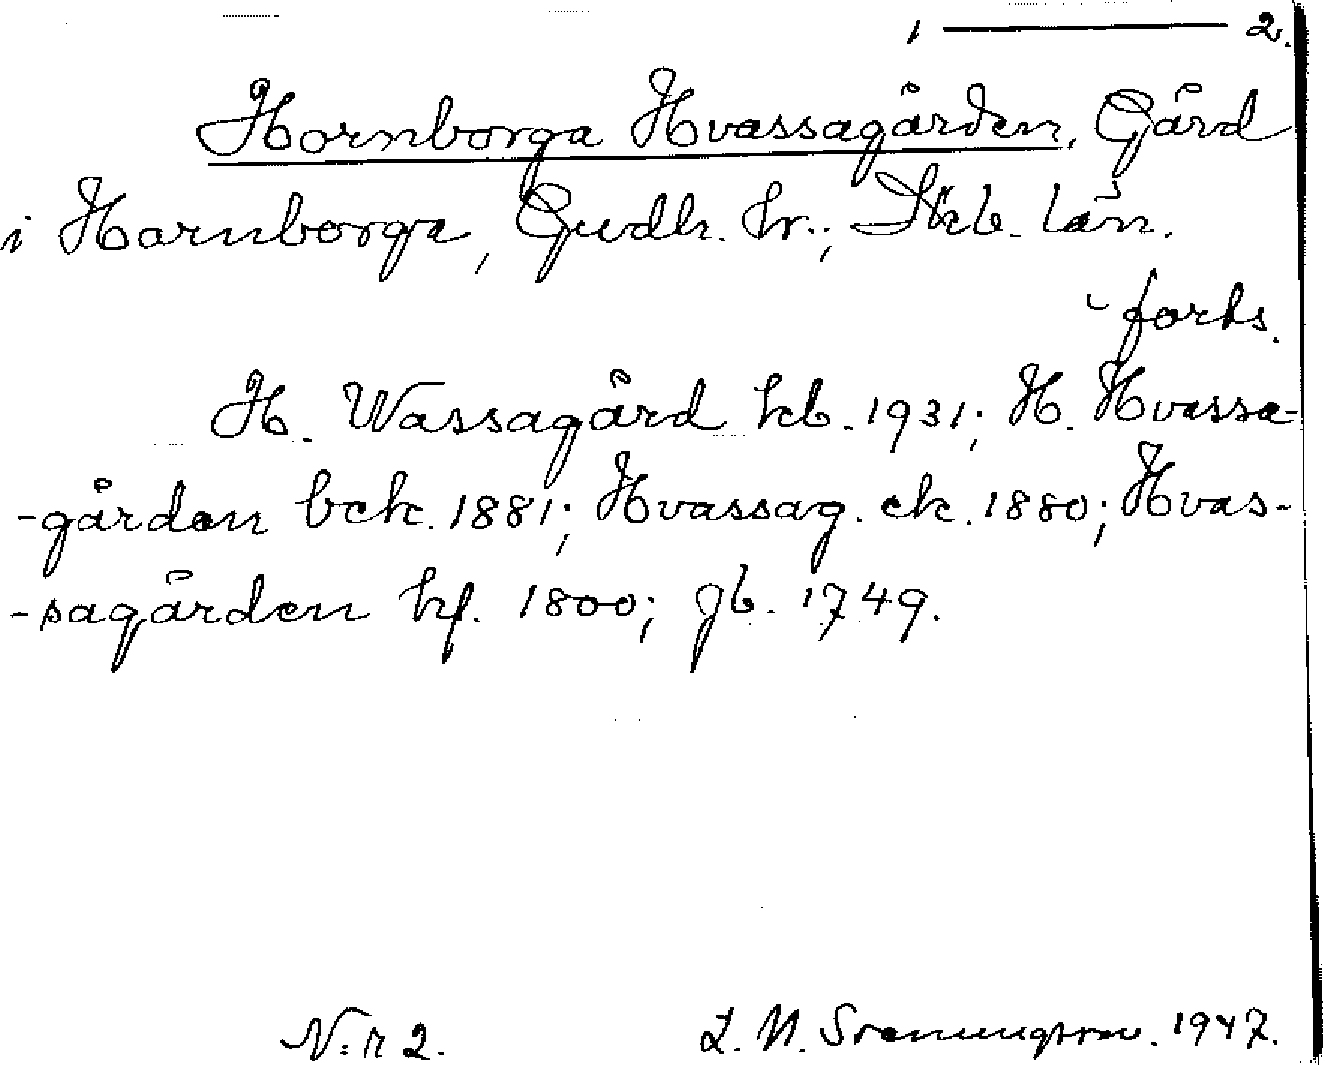 1 ——— 2.
Hornborga Hvassagården, Gård
i Hornborga, Gudh. hr., Skb. län.
forts.
H. Wassagård kb. 1931; H. Hvassa-
-gården bck. 1881; Hvassag. ek. 1880; Hvas-
-sagården hf. 1800; gb. 1749.
N:r 2. L. N. Svenungsson. 1947.